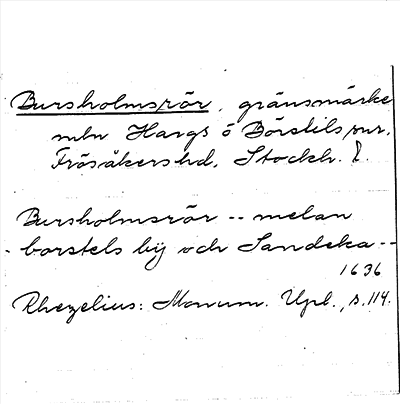 Bursholmsrör, gränsmärke
mln Hargs o Börstils snr,
Frösåkers hd, Stockh. l.
Bursholmsrör -- melan
- borstels bÿ och Sandeka --
1636
Rhezelius: Monum. Upl., s. 114.